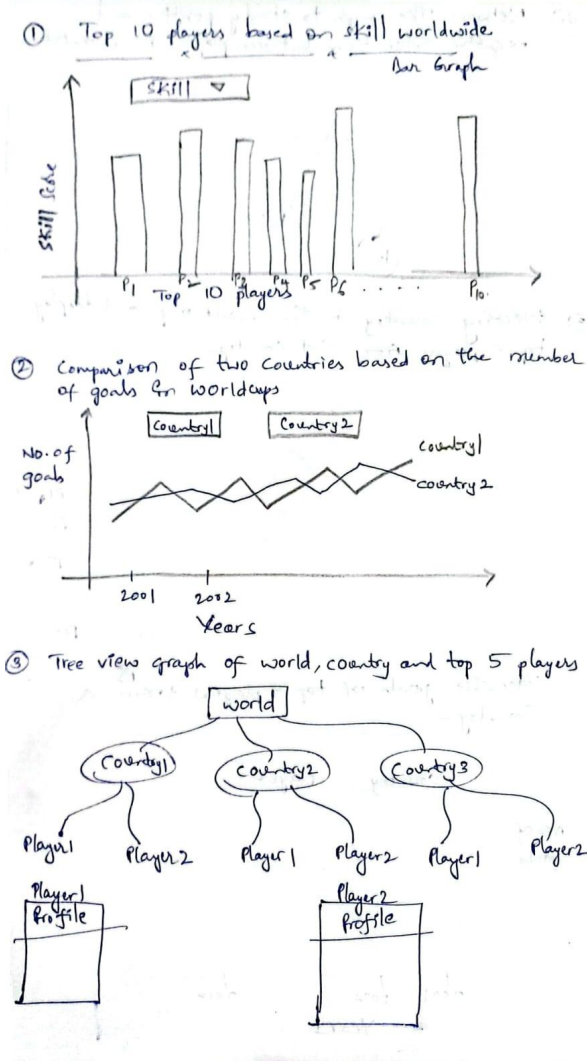 ① Top 10 players based on skill worldwide
Bar Graph
Skill
Skill Score
P1 P2 P3 P4 P5 P6 . . . . . P10.
Top 10 players
② Comparison of two Countries based on the number
of goals in worldcups
Country1 Country2
No. of
goals
Country1
country 2
2001 2002
Years
③ Tree view graph of world, country and top 5 players
world
Country1 Country2 Country3
Player1 Player2 Player1 Player2 Player1 Player2
Player1 Player2
Profile Profile